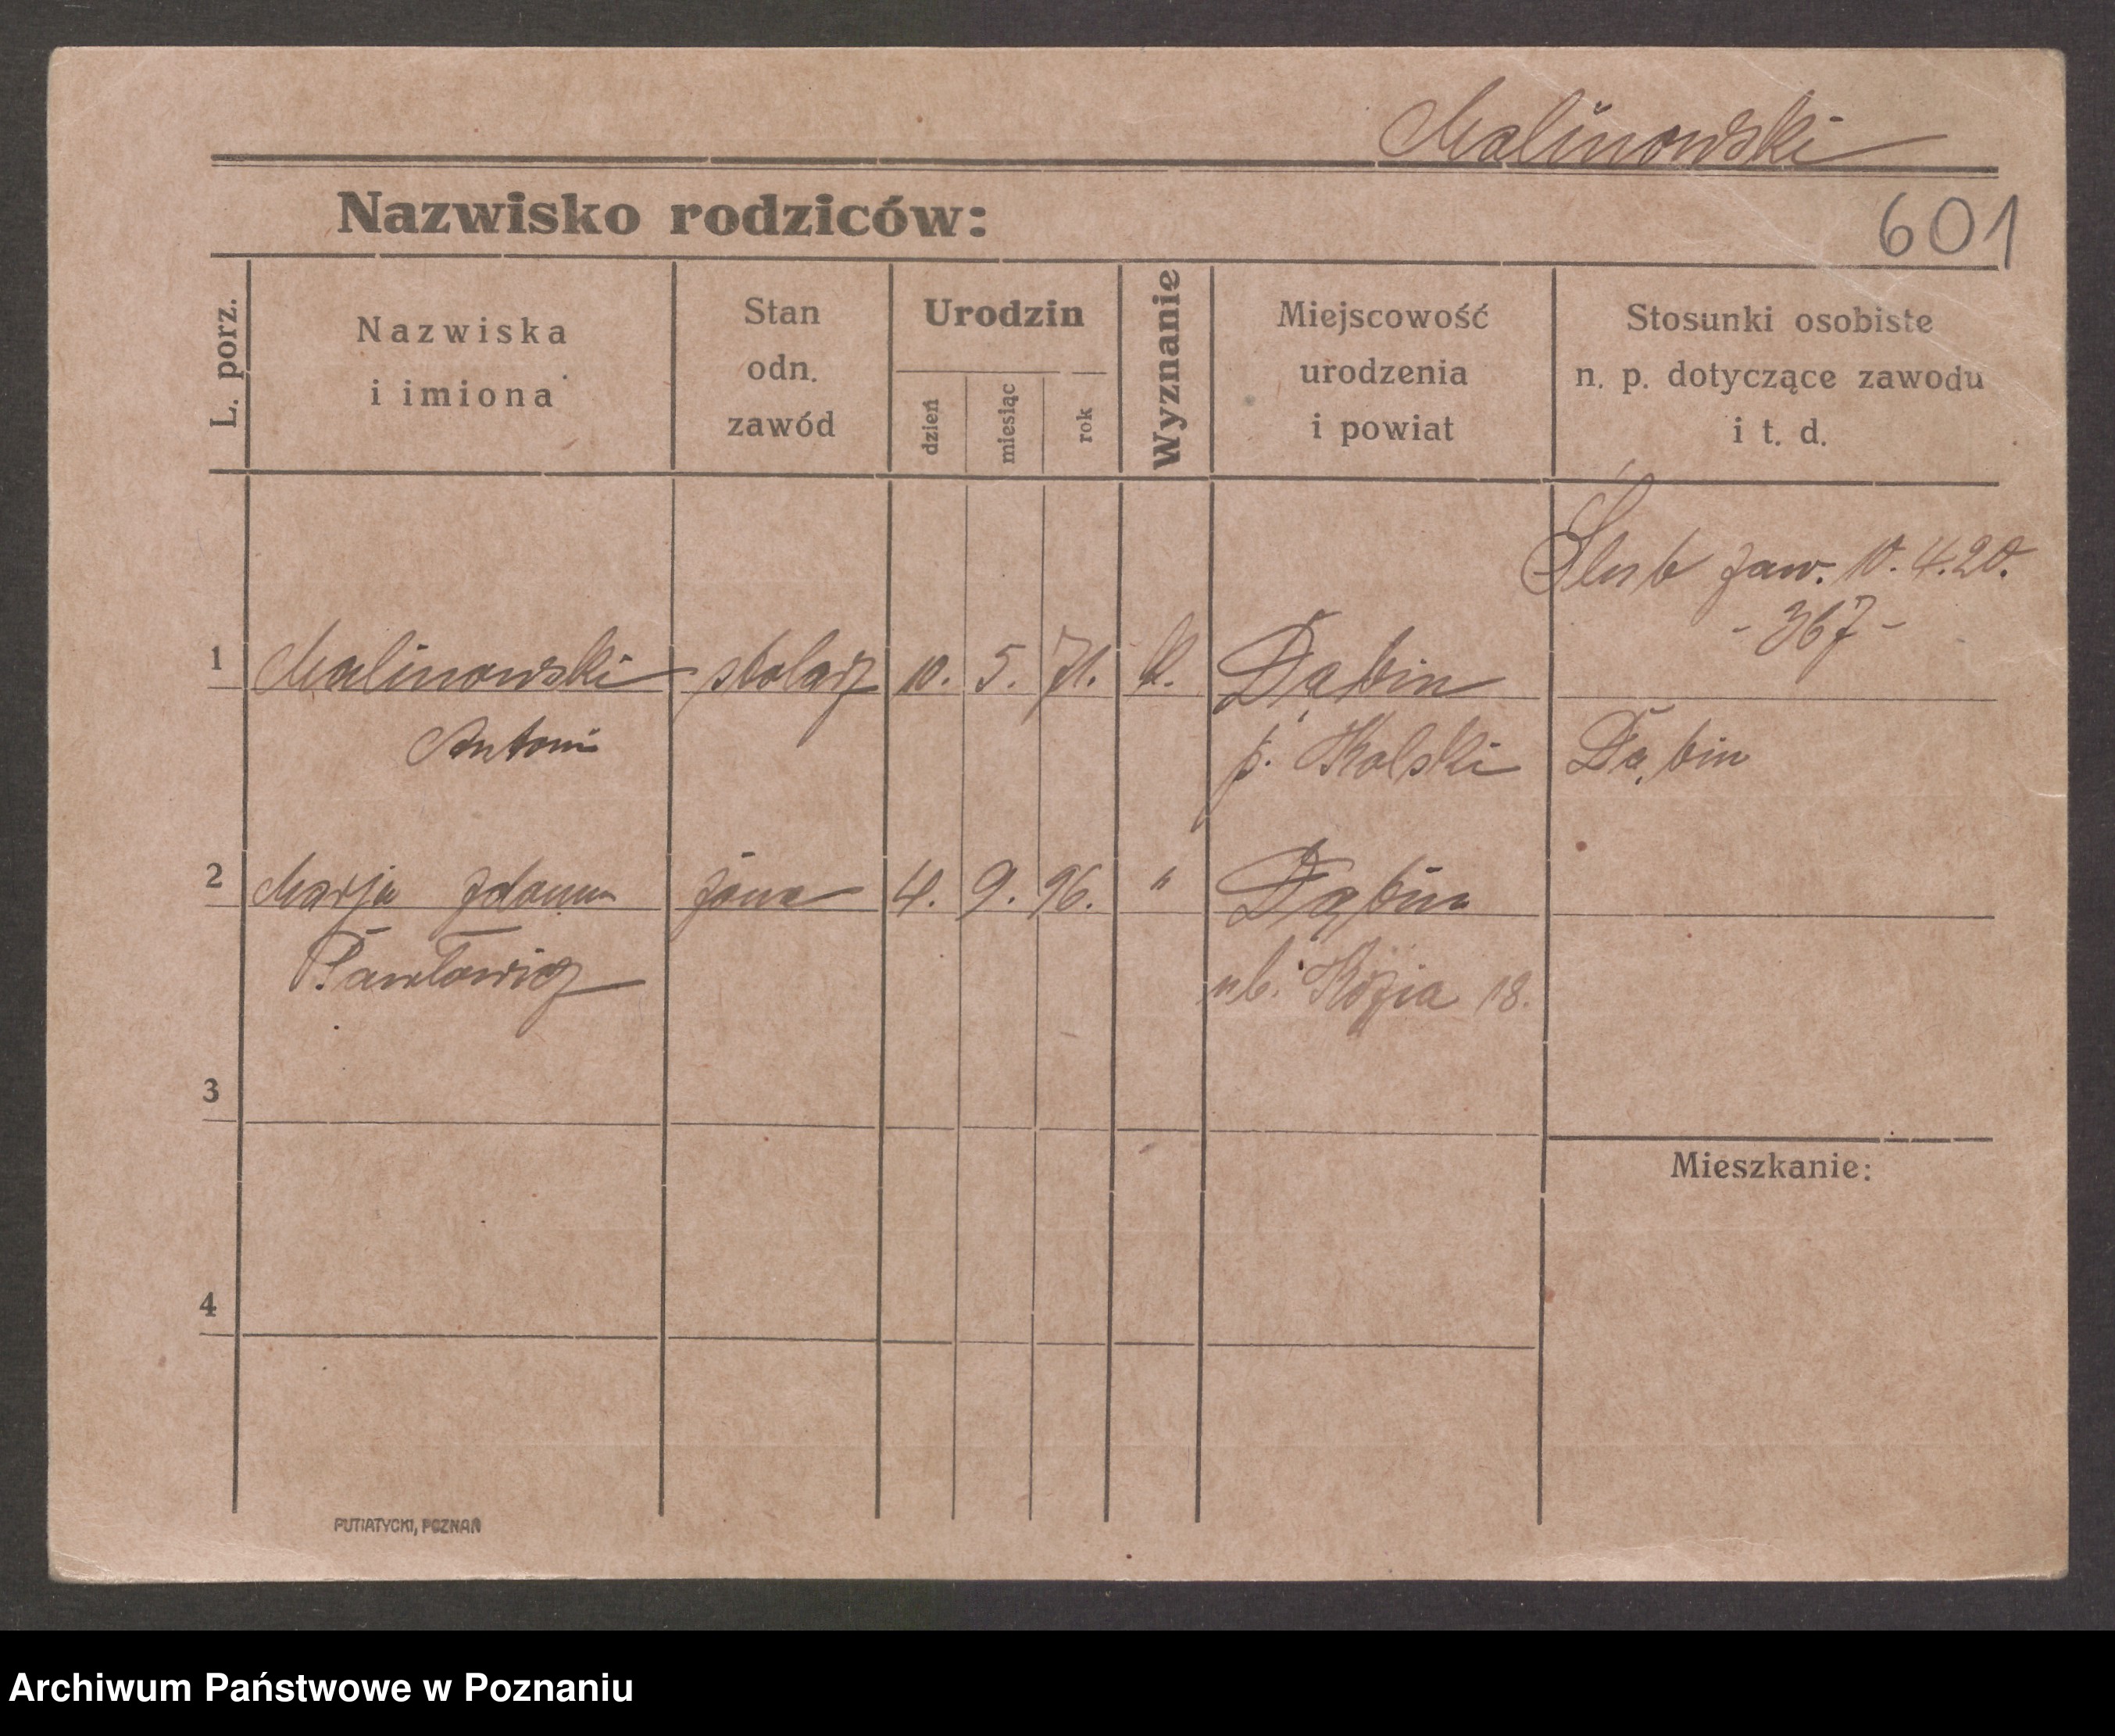 Malinowski
Nazwisko rodziców:
601
L. porz.
Nazwiska
i imiona
Stan
odn.
zawód
Urodzin
dzień
miesiąc
rok
Wyznanie
Miejscowość
urodzenia
i powiat
Stosunki osobiste
n. p. dotyczące zawodu
i t. d.
Ślub zaw. 10. 4. 20.
- 367 -
1 Malinowski stolarz 10. 5. 71. k. Dąbin
Antoni p. Kolski Dąbin
2 Marja zdomu żona 4. 9. 96. " Dąbin
Pawłowicz ul. Kozia 18.
3
Mieszkanie:
4
PUTIATYCKI, POZNAŃ
Archiwum Państwowe w Poznaniu